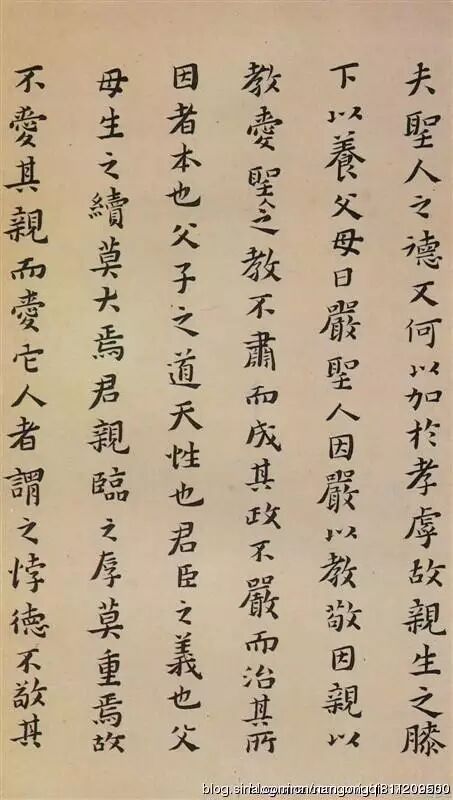 夫聖人之德又何以加於孝虖故親生之膝
下以養父母日嚴聖人因嚴以教敬因親以
教愛聖人之教不肅而成其政不嚴而治其所
因者本也父子之道天性也君臣之義也父
母生之續莫大焉君親臨之厚莫重焉故
不愛其親而愛它人者謂之悖德不敬其